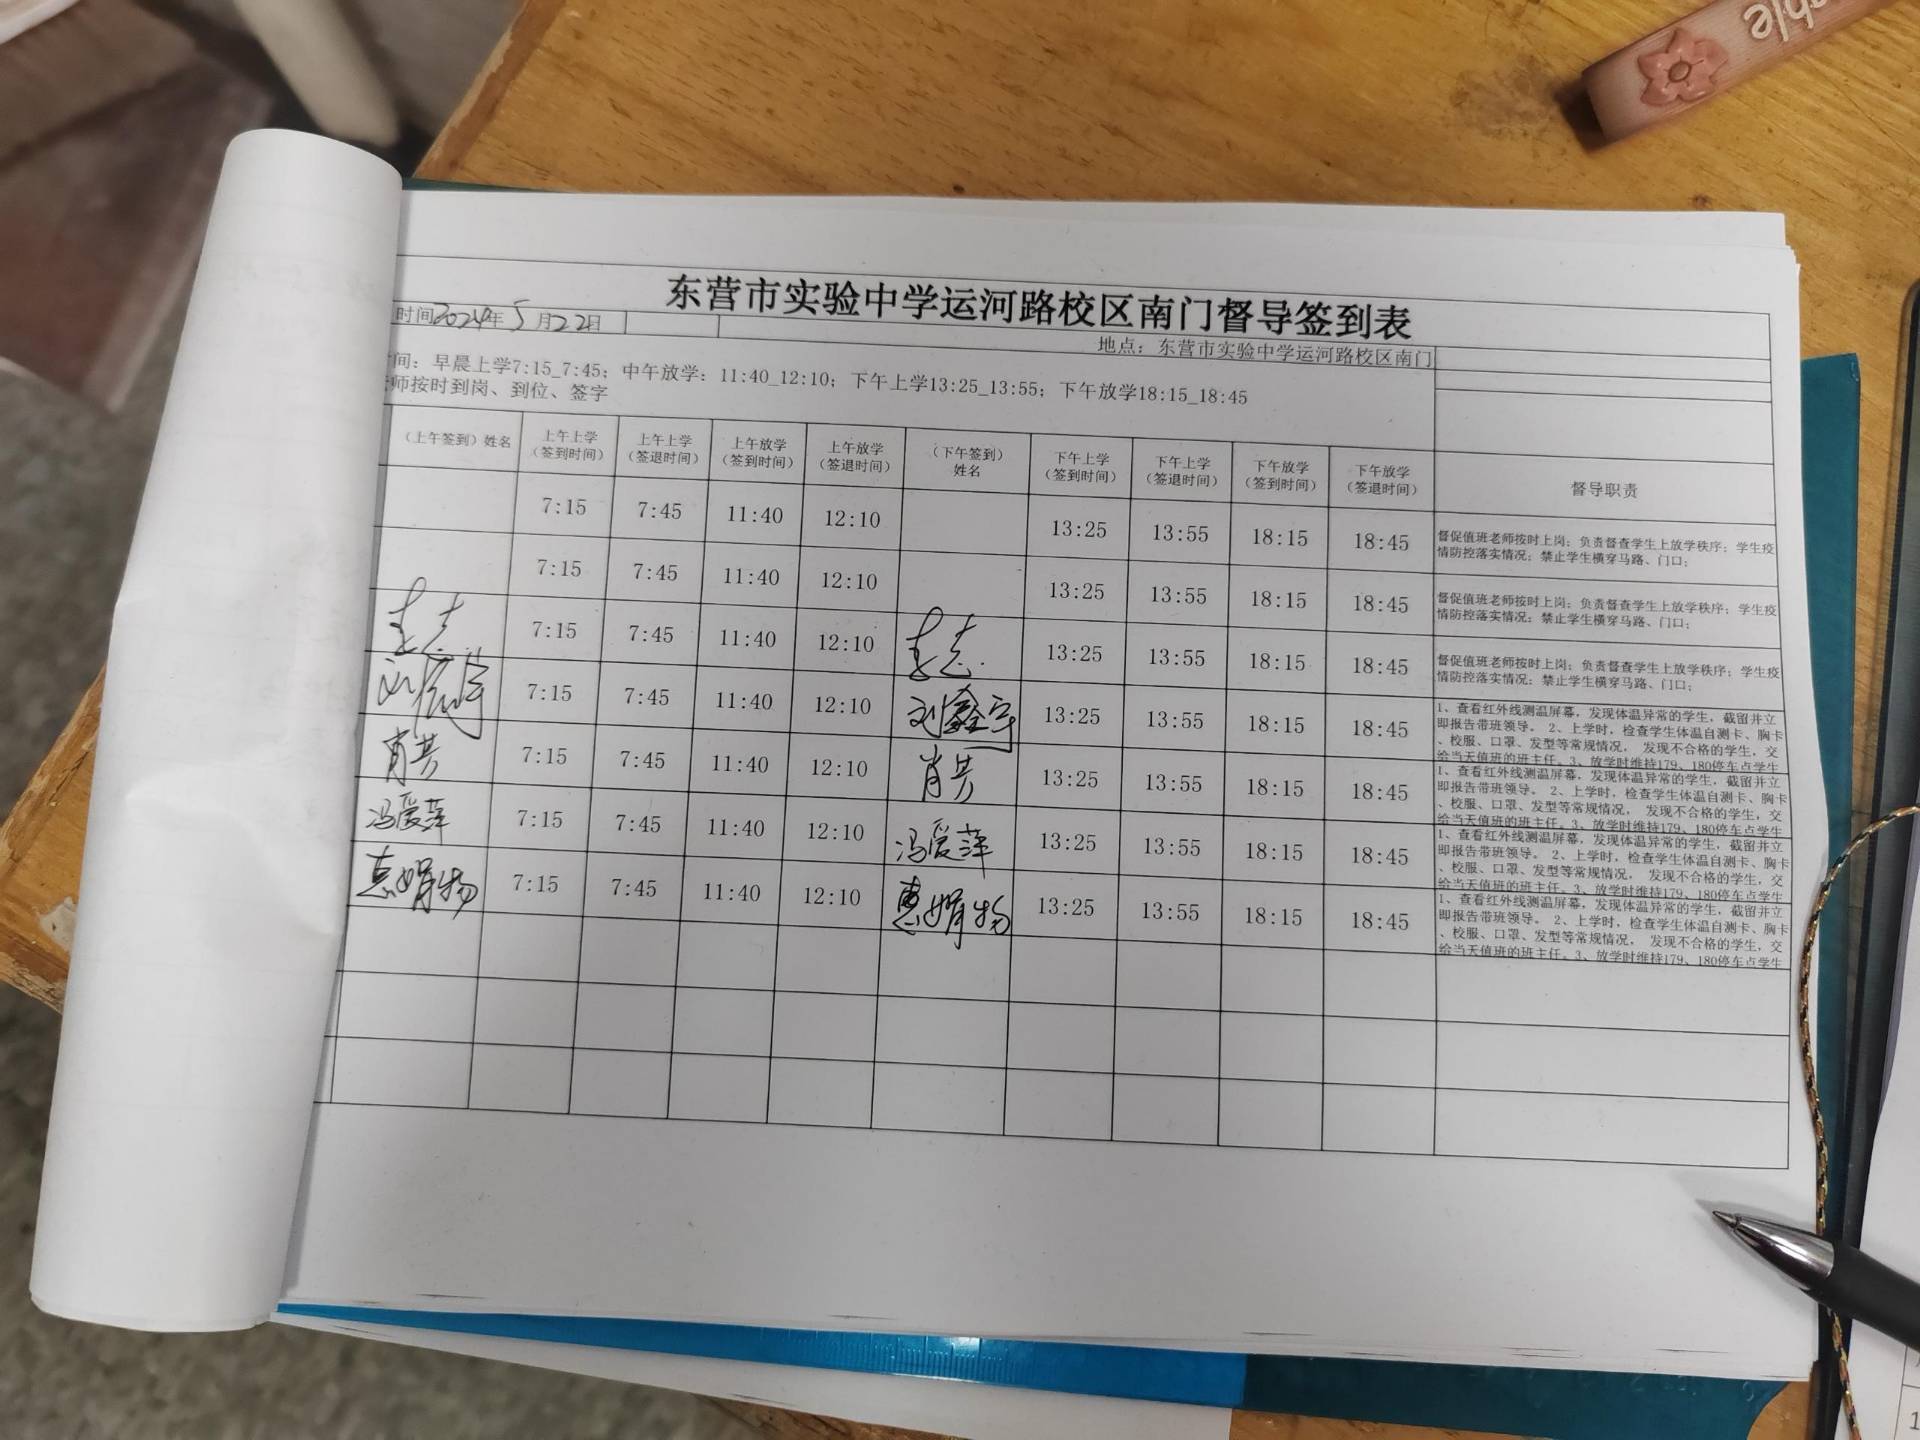 able
东营市实验中学运河路校区南门督导签到表
时间2024年5月22日
地点：东营市实验中学运河路校区南门
间：早晨上学7:15_7:45；中午放学：11:40_12:10；下午上学13:25_13:55；下午放学18:15_18:45
师按时到岗、到位、签字
（上午签到）姓名 上午上学（签到时间） 上午上学（签退时间） 上午放学（签到时间） 上午放学（签退时间） （下午签到）姓名 下午上学（签到时间） 下午上学（签退时间） 下午放学（签到时间） 下午放学（签退时间） 督导职责
7:15 7:45 11:40 12:10 13:25 13:55 18:15 18:45
督促值班老师按时上岗；负责督查学生上放学秩序；学生疫
情防控落实情况；禁止学生横穿马路、门口；
7:15 7:45 11:40 12:10 13:25 13:55 18:15 18:45
督促值班老师按时上岗；负责督查学生上放学秩序；学生疫
情防控落实情况；禁止学生横穿马路、门口；
7:15 7:45 11:40 12:10 13:25 13:55 18:15 18:45
督促值班老师按时上岗；负责督查学生上放学秩序；学生疫
情防控落实情况；禁止学生横穿马路、门口；
7:15 7:45 11:40 12:10 刘鑫宇 13:25 13:55 18:15 18:45
1、查看红外线测温屏幕，发现体温异常的学生，截留并立
即报告带班领导。 2、上学时，检查学生体温自测卡、胸卡
、校服、口罩、发型等常规情况， 发现不合格的学生，交
给当天值班的班主任。3、放学时维持179、180停车点学生
肖芳 7:15 7:45 11:40 12:10 肖芳 13:25 13:55 18:15 18:45
1、查看红外线测温屏幕，发现体温异常的学生，截留并立
即报告带班领导。 2、上学时，检查学生体温自测卡、胸卡
、校服、口罩、发型等常规情况， 发现不合格的学生，交
给当天值班的班主任。3、放学时维持179、180停车点学生
冯爱萍 7:15 7:45 11:40 12:10 冯爱萍 13:25 13:55 18:15 18:45
1、查看红外线测温屏幕，发现体温异常的学生，截留并立
即报告带班领导。 2、上学时，检查学生体温自测卡、胸卡
、校服、口罩、发型等常规情况， 发现不合格的学生，交
给当天值班的班主任。3、放学时维持179、180停车点学生
7:15 7:45 11:40 12:10 13:25 13:55 18:15 18:45
1、查看红外线测温屏幕，发现体温异常的学生，截留并立
即报告带班领导。 2、上学时，检查学生体温自测卡、胸卡
、校服、口罩、发型等常规情况， 发现不合格的学生，交
给当天值班的班主任。3、放学时维持179、180停车点学生